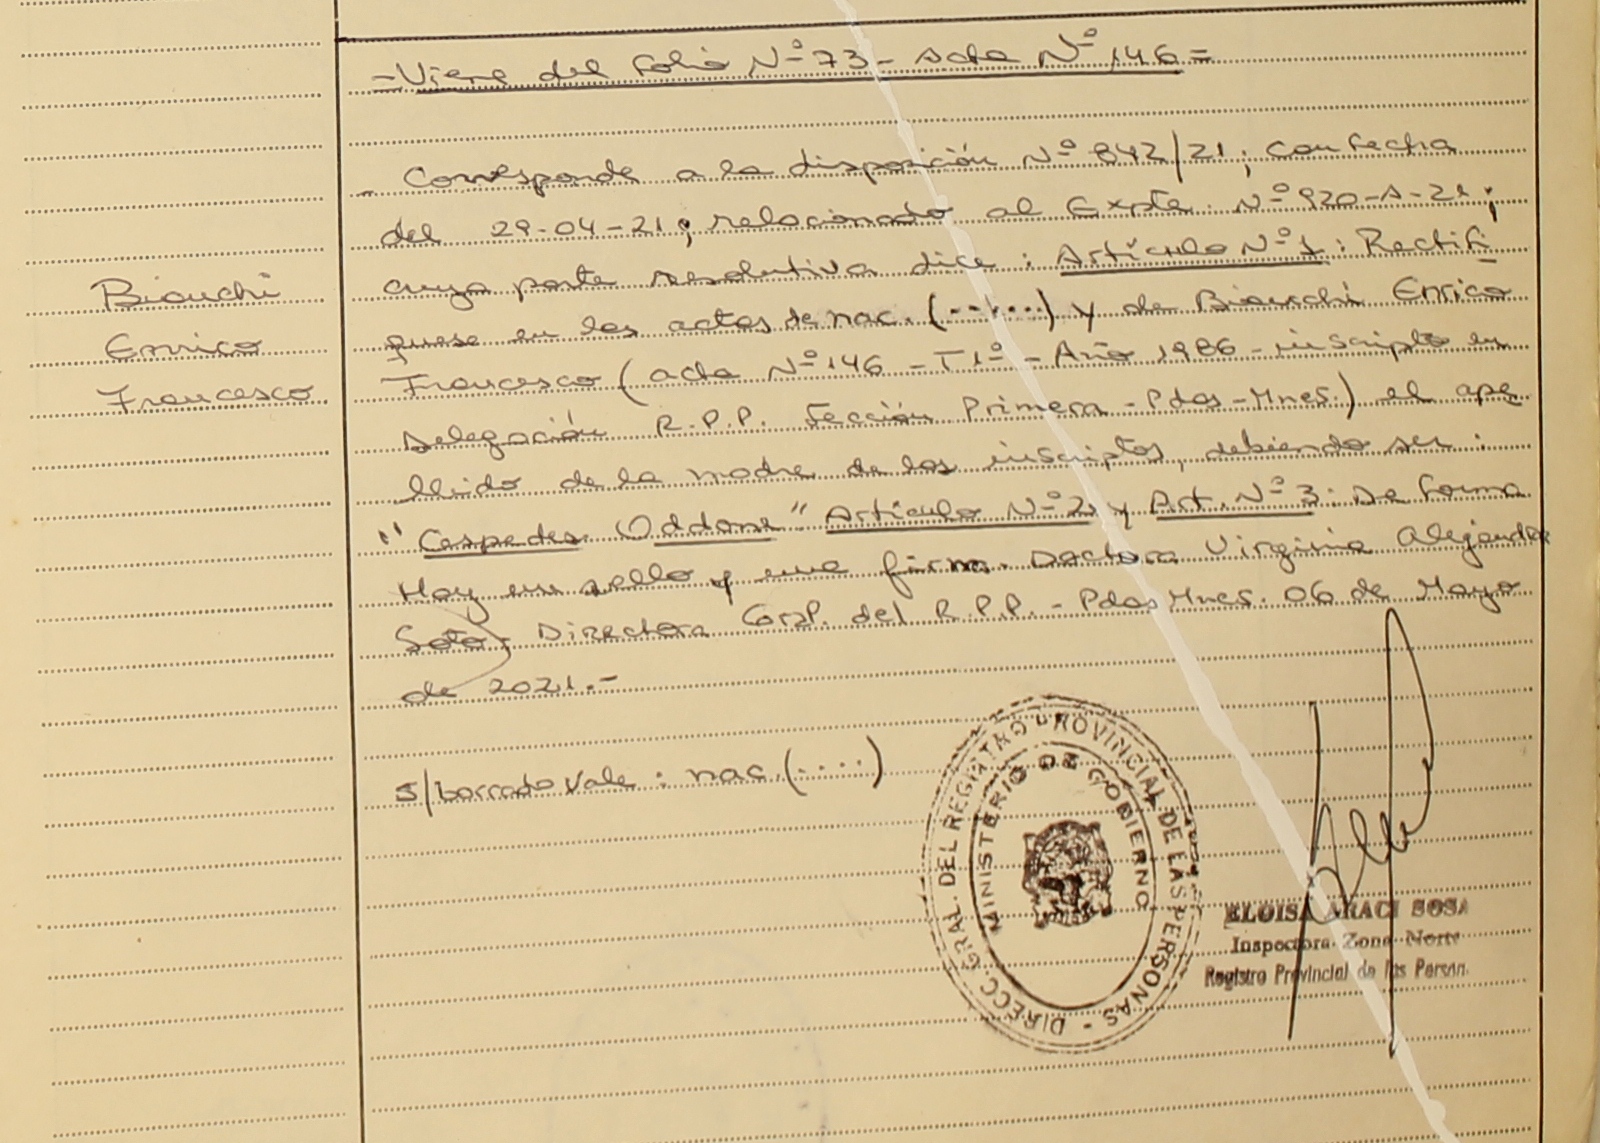 - Viene del folio Nº 73 - acta Nº 146 =
Bianchi
Enrico
Francesco
- Corresponde a la disposición Nº 842/21; con fecha
del 29-04-21; relacionado al Expte. Nº 920-A-21;
cuya parte resolutiva dice: Artículo Nº 1: Rectifi
quese en las actas de nac. (.......) y de Bianchi Enrico
Francesco (acta Nº 146 - T 1º - Año 1986 - inscripto en
Delegación R.P.P. Sección Primera - Pdas - Mnes.) el ape
llido de la madre de los inscriptos, debiendo ser:
"Cespedes Oddone" Artículo Nº 2 y Art. Nº 3: De forma
Hay un sello y una firma. Doctora Virginia Alejandra
Soto, Directora Gral. del R.P.P. - Pdas Mnes. 06 de Mayo
de 2021.-
S/borrado Vale: nac. (....)
DIRECC. GRAL. DEL REGISTRO PROVINCIAL DE LAS PERSONAS -
MINISTERIO DE GOBIERNO
ELOISA ARACI SOSA
Inspectora Zona Norte
Registro Provincial de las Person.